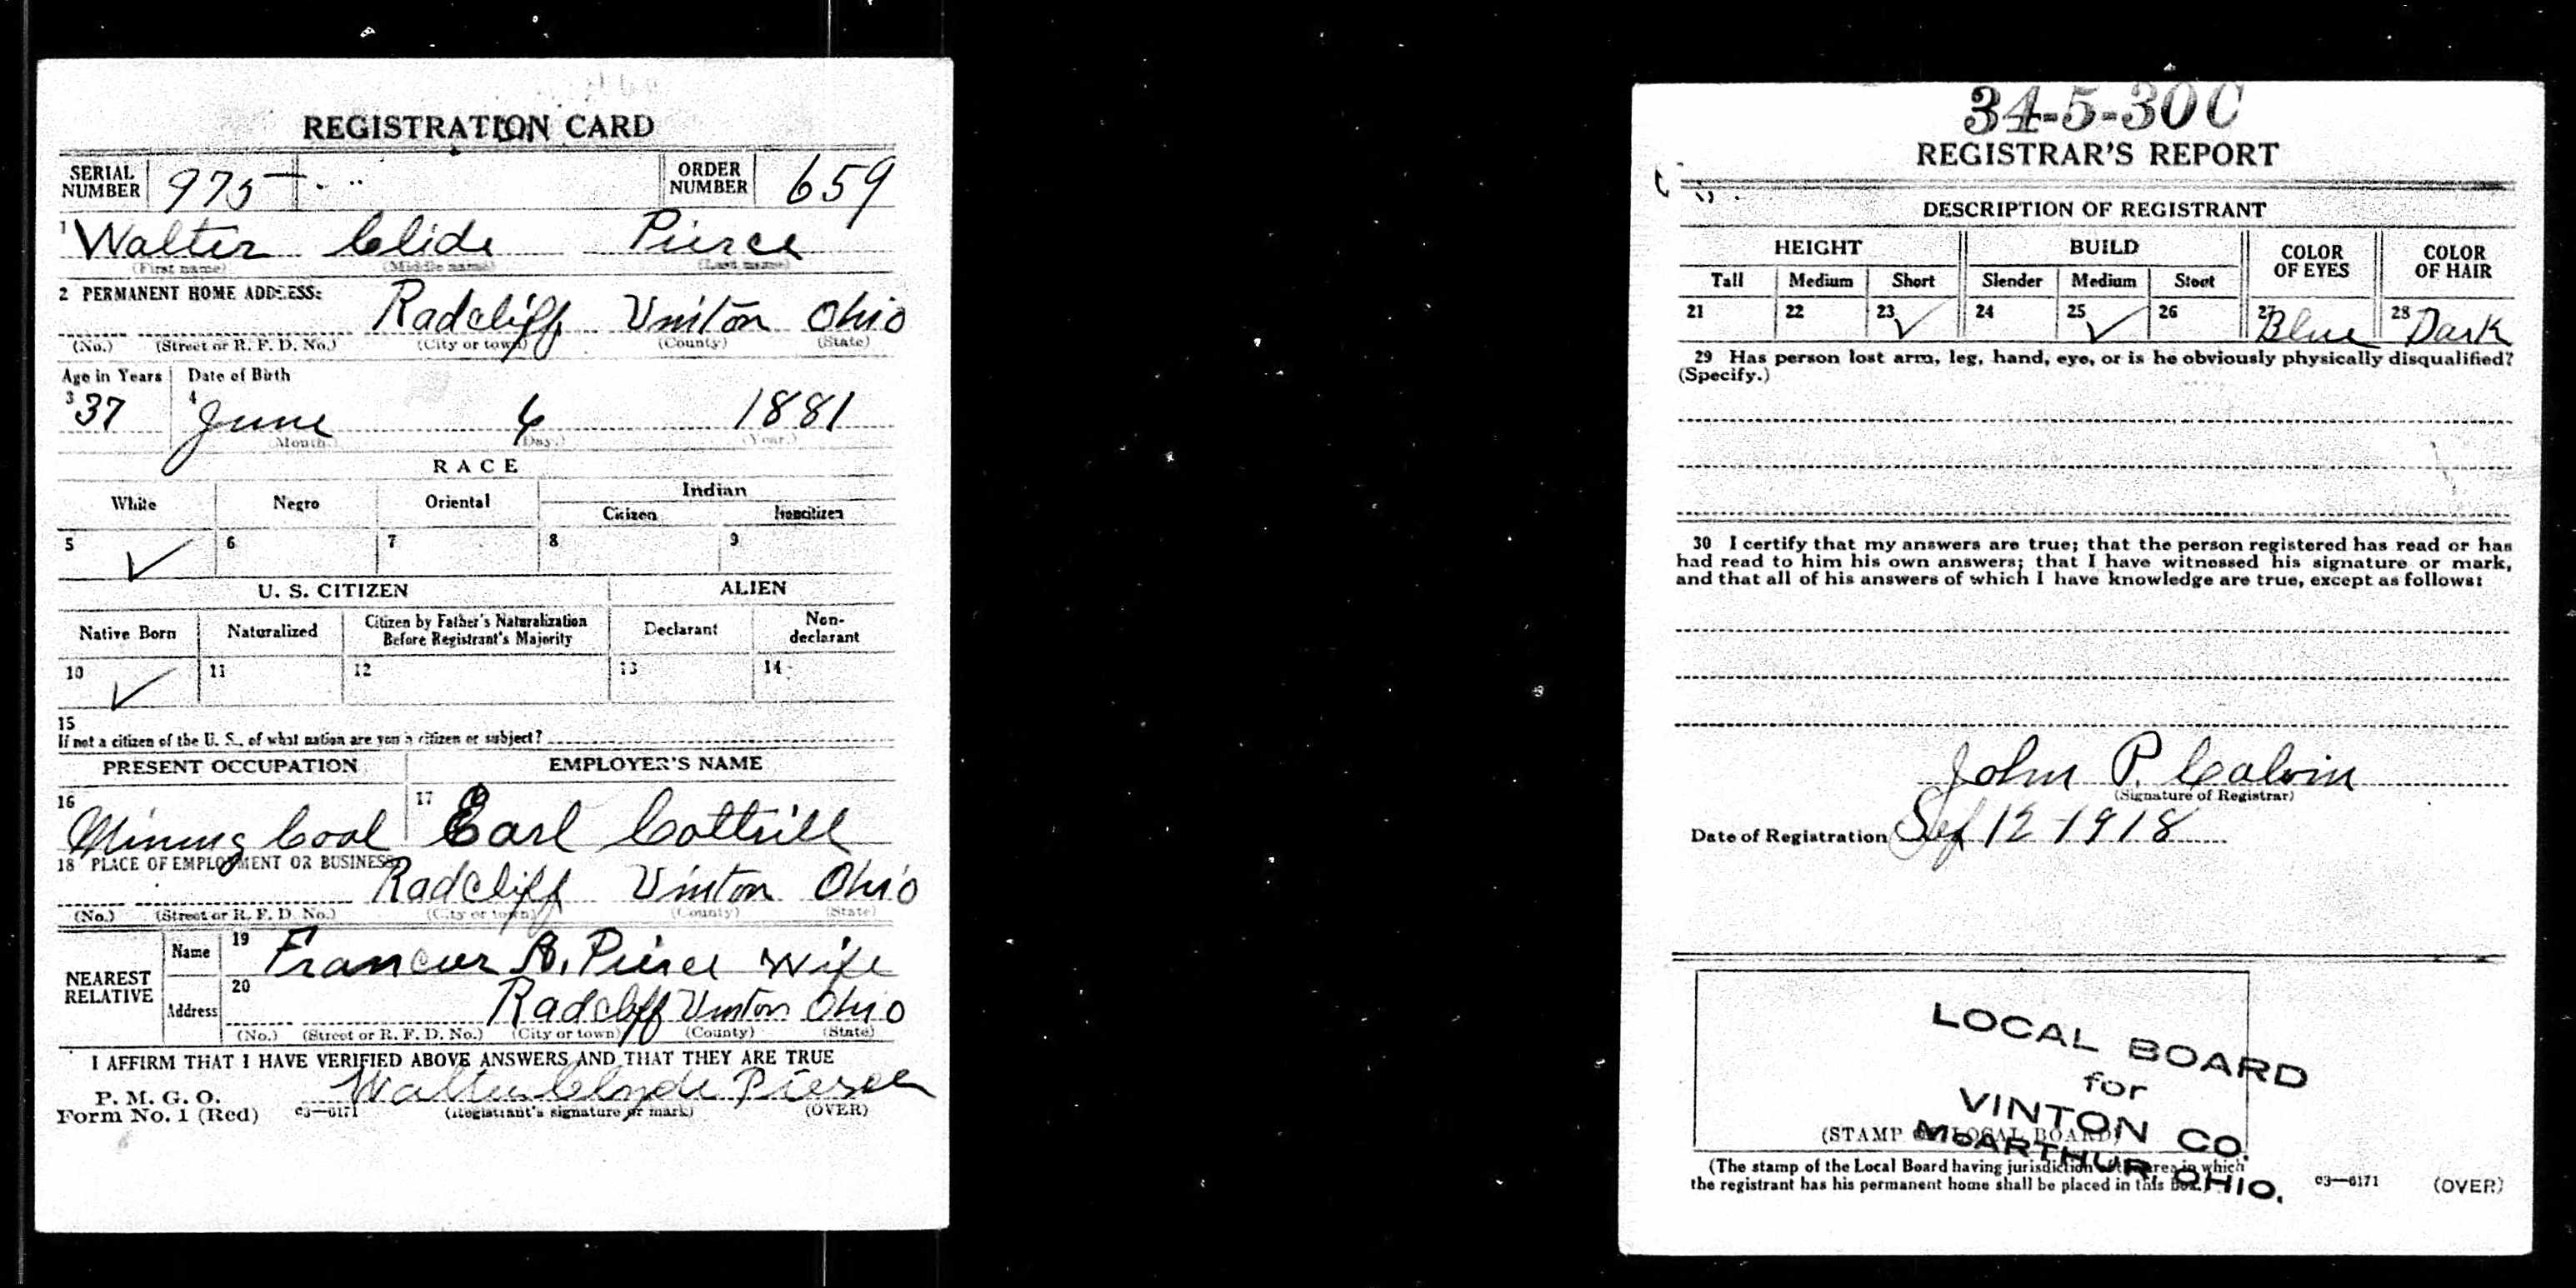 REGISTRATION CARD
SERIAL NUMBER 975 ORDER NUMBER 659
1 Walter Clide Pierce
(First name) (Middle name) (Last name)
2 PERMANENT HOME ADDRESS:
Radcliff Vinton Ohio
(No.) (Street or R. F. D. No.) (City or town) (County) (State)
Age in Years Date of Birth
3 37 4 June 6 1881
(Month.) (Day.) (Year.)
RACE
White Negro Oriental Indian
Citizen Noncitizen
5 ✓ 6 7 8 9
U. S. CITIZEN ALIEN
Native Born Naturalized Citizen by Father's Naturalization Before Registrant's Majority Declarant Non-declarant
10 ✓ 11 12 13 14
15
If not a citizen of the U. S., of what nation are you a citizen or subject?
PRESENT OCCUPATION EMPLOYER'S NAME
16 Mining Coal 17 Earl Cottrill
18 PLACE OF EMPLOYMENT OR BUSINESS
Radcliff Vinton Ohio
(No.) (Street or R. F. D. No.) (City or town) (County) (State)
NEAREST RELATIVE
Name 19 A. Pierce Wife
Address 20 Radcliff Vinton Ohio
(No.) (Street or R. F. D. No.) (City or town) (County) (State)
I AFFIRM THAT I HAVE VERIFIED ABOVE ANSWERS AND THAT THEY ARE TRUE
Walter Clyde Pierce
P. M. G. O.
Form No. 1 (Red) c3—6171 (Registrant's signature or mark) (OVER)
34-5-30 C
REGISTRAR'S REPORT
DESCRIPTION OF REGISTRANT
HEIGHT BUILD COLOR OF EYES COLOR OF HAIR
Tall Medium Short Slender Medium Stout
21 22 23 ✓ 24 25 ✓ 26 27 Blue 28 Dark
29 Has person lost arm, leg, hand, eye, or is he obviously physically disqualified?
(Specify.)
30 I certify that my answers are true; that the person registered has read or has
had read to him his own answers; that I have witnessed his signature or mark,
and that all of his answers of which I have knowledge are true, except as follows:
John P. Calvin
(Signature of Registrar)
Date of Registration Sep 12 1918
LOCAL BOARD
for
VINTON CO.
McARTHUR, OHIO.
(STAMP OF LOCAL BOARD)
(The stamp of the Local Board having jurisdiction of the area in which
the registrant has his permanent home shall be placed in this box.)
c3—6171 (OVER)